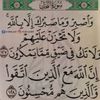 وَاصْبِرْ وَمَا صَبْرُكَ إِلَّا بِاللَّهِ
وَلَا تَحْزَنْ عَلَيْهِمْ
وَلَا تَكُ فِي ضَيْقٍ مِمَّا يَمْكُرُونَ
إِنَّ اللَّهَ مَعَ الَّذِينَ اتَّقَوْا
وَالَّذِينَ هُمْ مُحْسِنُونَ